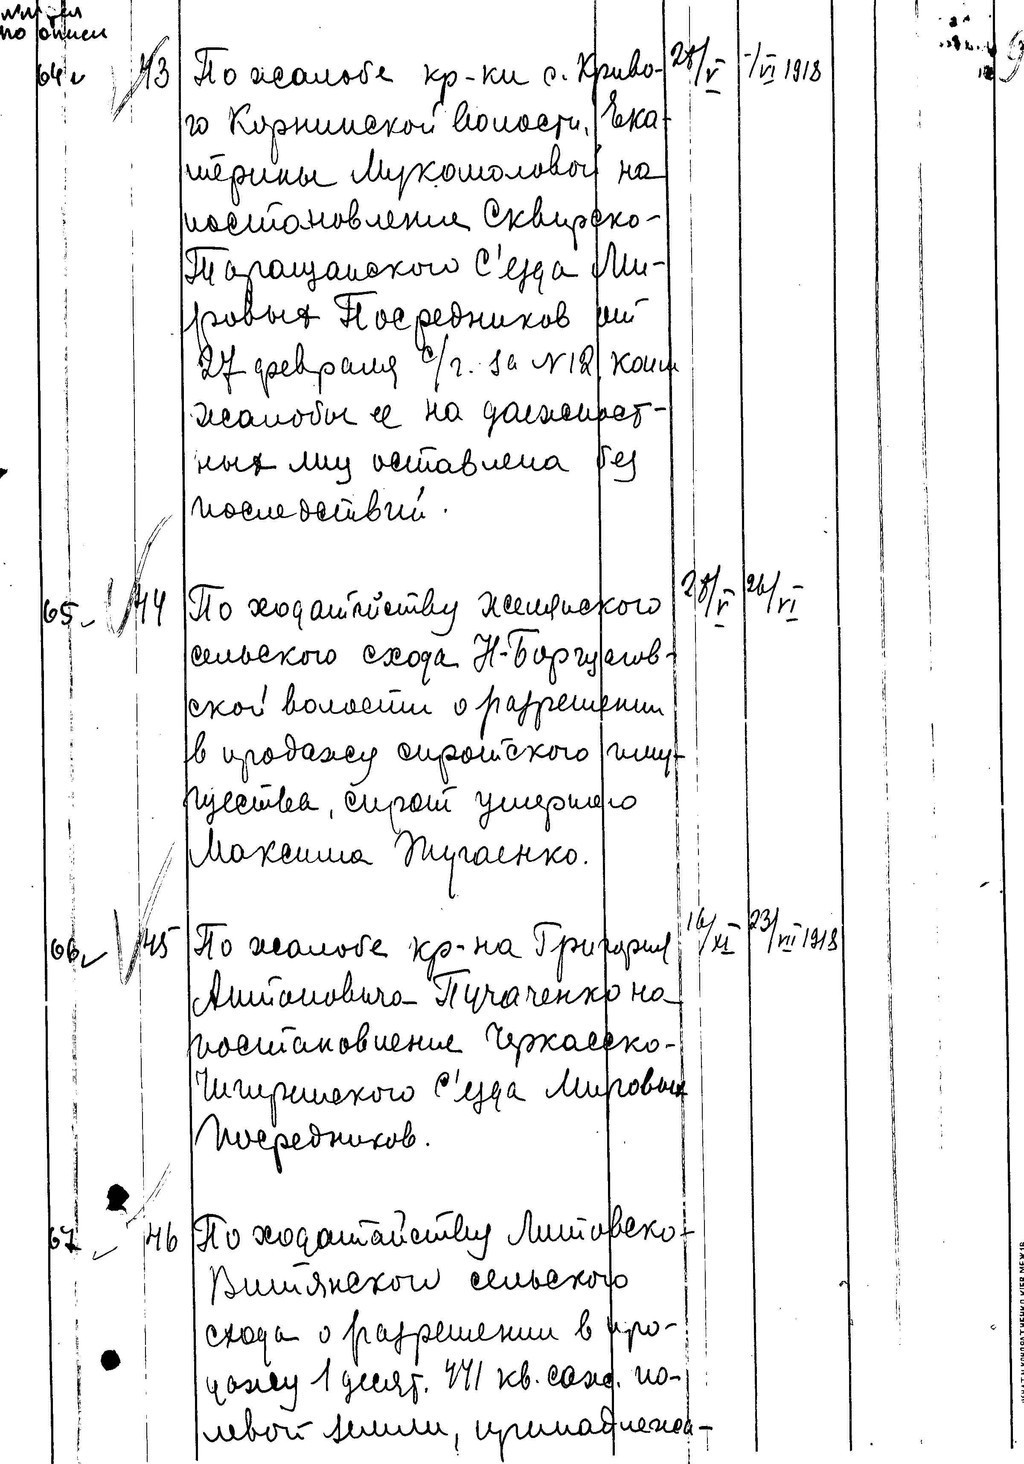 по описи
64 43 По жалобе кр-ки с. Криво- 28/V 7/VI 1918
го Корнинской волости, Ека-
терины Мукомоловой на
постановление Сквирско-
Таращанского С'езда Ми-
ровых Посредников от
27 февраля с/г. за N 12, коим
жалобы ее на должност-
ных лиц оставлена без
последствий.
65 44 По ходатайству
сельского схода
ской волости о разрешении
в продажу сиротского иму-
щества, сирот умершего
Максима
66 45 По жалобе кр-на Григория 16/XI 23/VII 1918
Антоновича Пугаченко на
постановление Черкасско-
Чигиринского С'езда Мировых
Посредников.
67 46 По ходатайству Литовско-
Витянского сельского
схода о разрешении в про-
дажу 1 десят. 441 кв. саж. по-
левой земли, принадлежа-